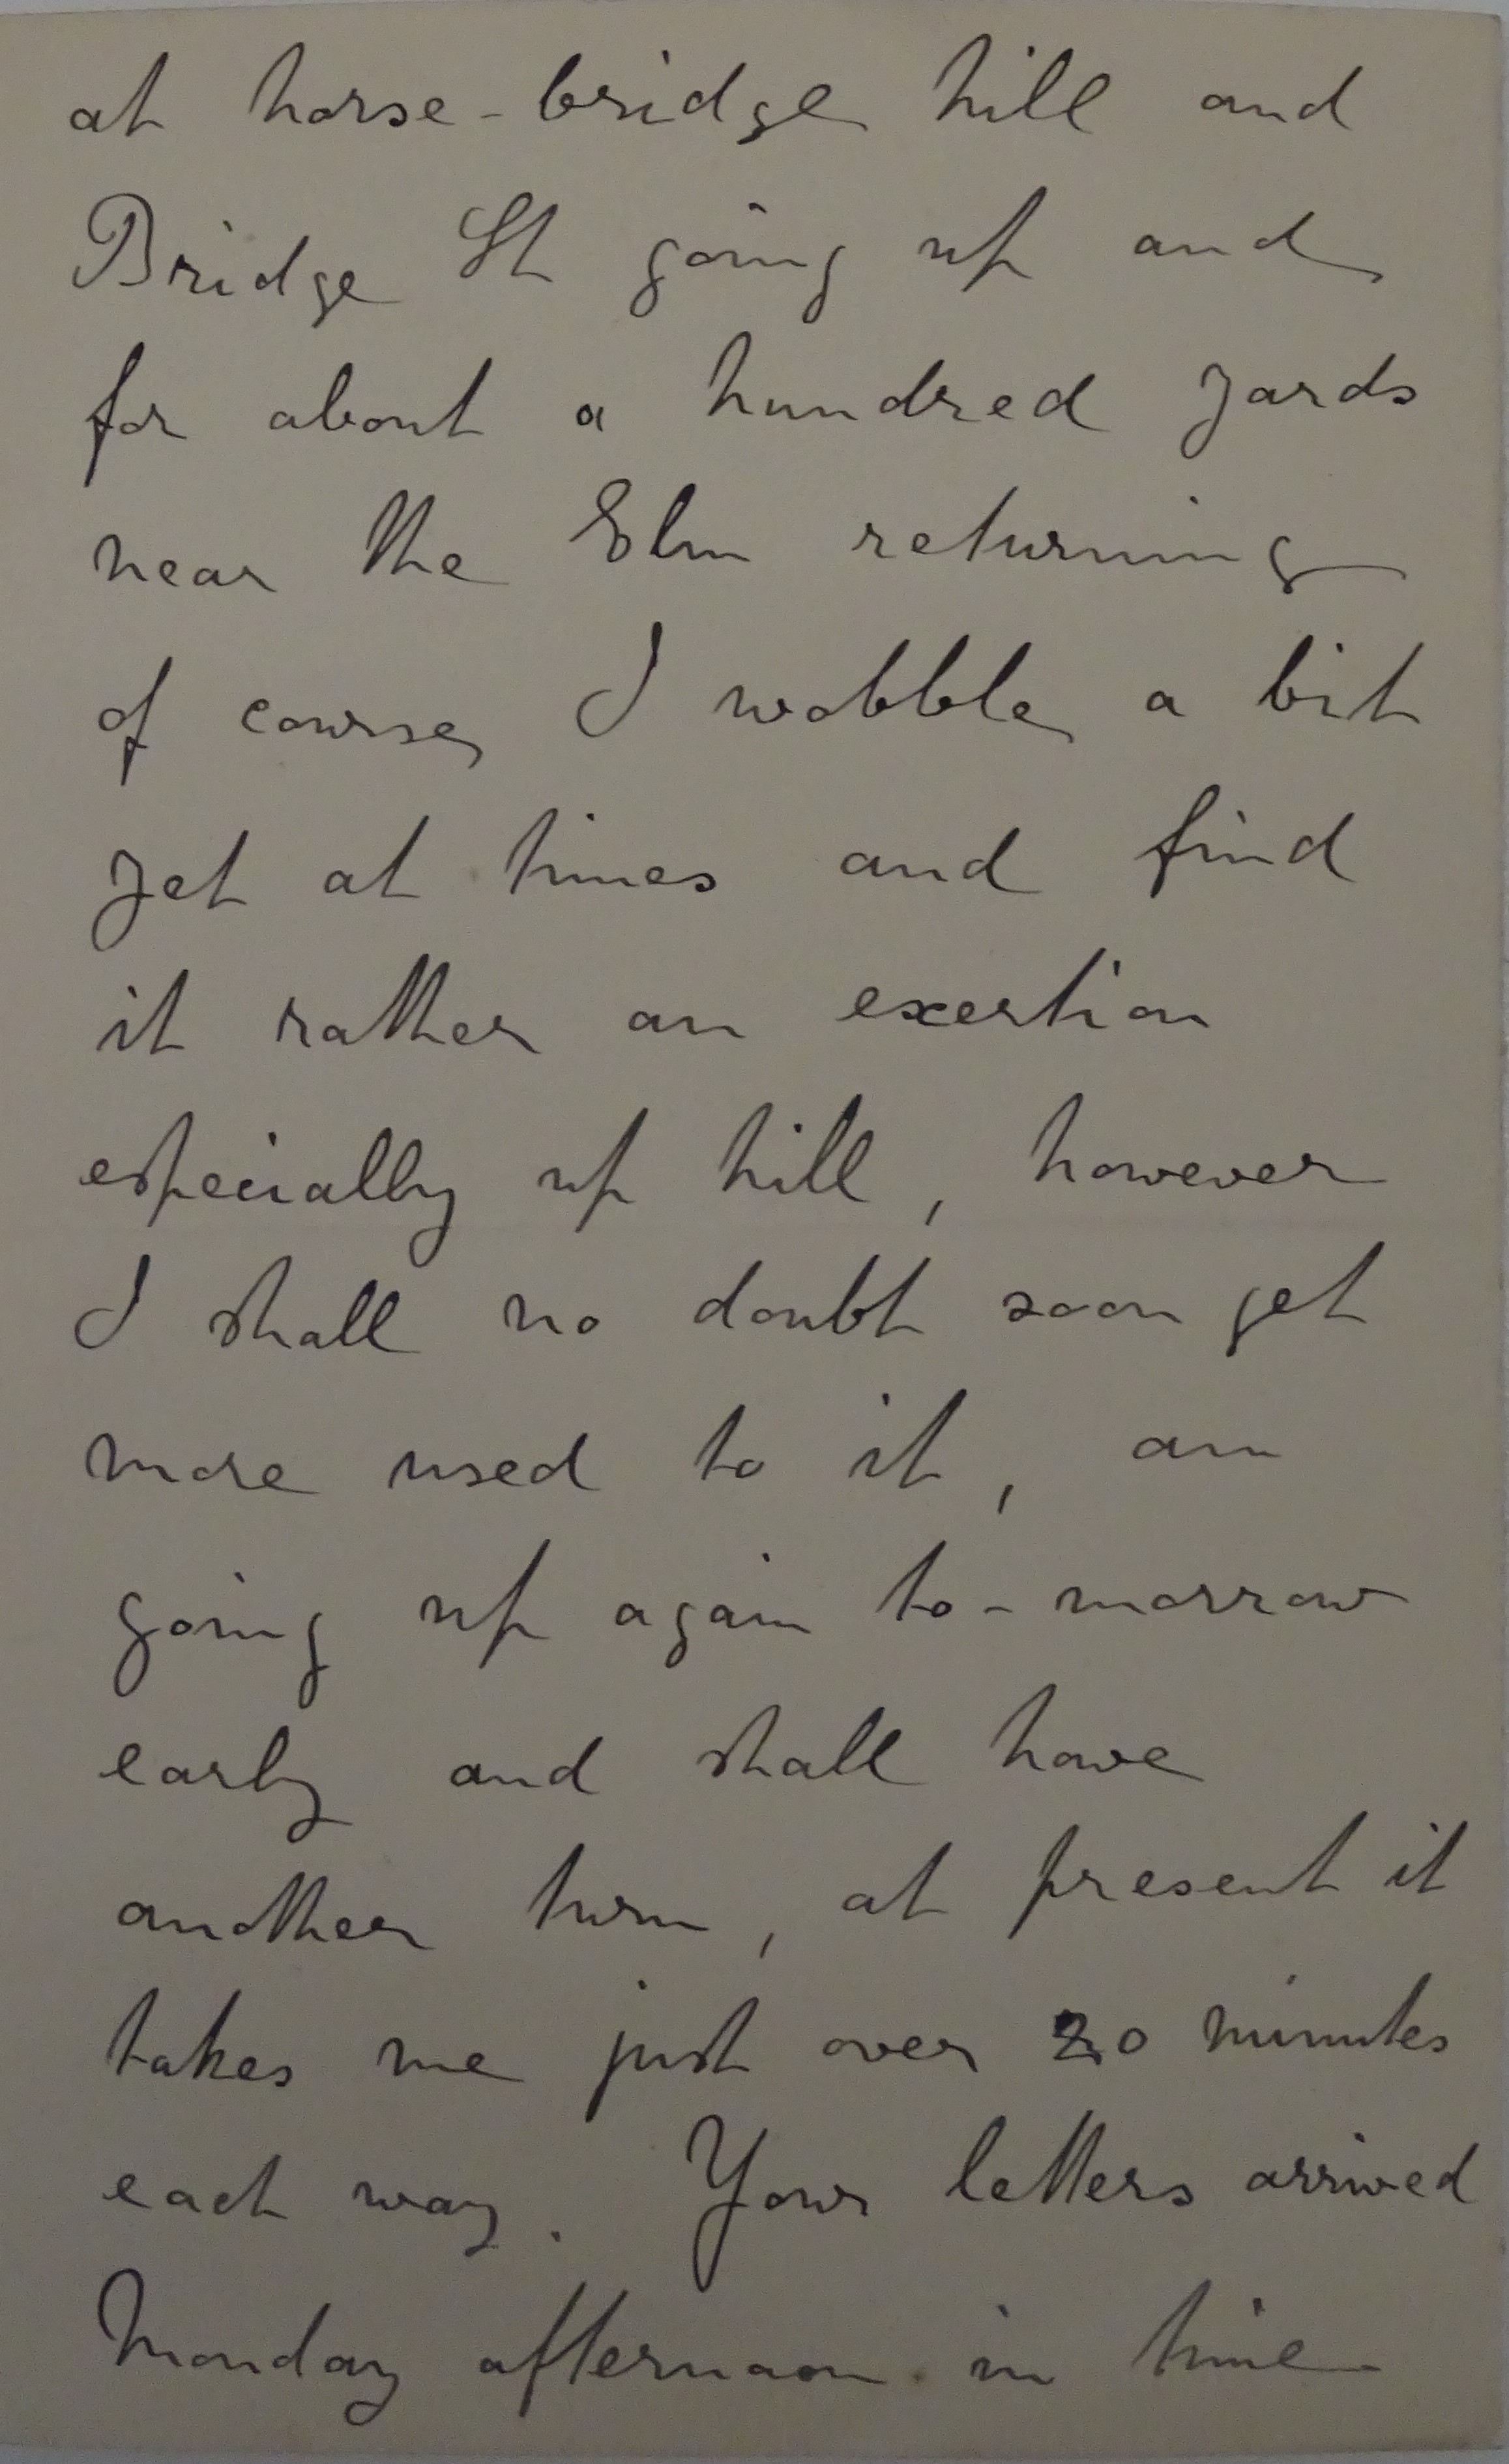 at horse-bridge hill and
Bridge St going up and
for about a hundred yards
near the Elm returning
of course, I wobble a bit
yet at times and find
it rather an exertion
especially up hill, however
I shall no doubt soon get
more used to it, am
going up again to-morrow
early and shall have
another turn, at present it
takes me just over 20 minutes
each way. Your letters arrived
Monday afternoon in time